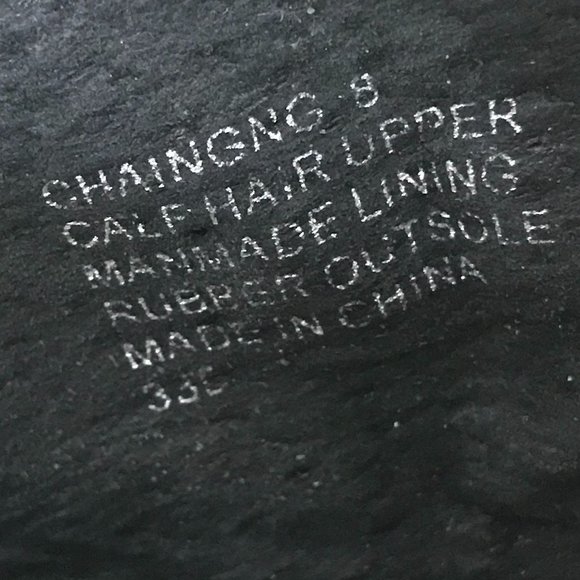 CHAINGNG 8
CALF HAIR UPPER
MANMADE LINING
RUBBER OUTSOLE
MADE IN CHINA